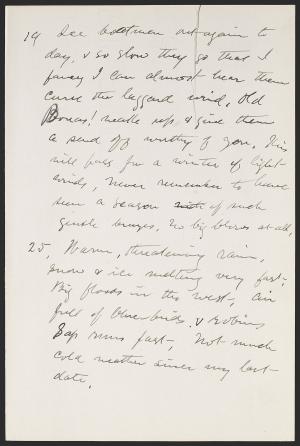 19 Ice boatmen out again to
day, & so slow they go that I
fancy I can almost hear them
curse the laggard wind. Old
Boreas! wake up & give them
a send off worthy of you. This
will pass for a winter of light
winds, never remember to have
seen a season of such
gentle breezes. No big blows at all.
25, Warm, threatening rain,
snow & ice melting very fast.
Big floods in the west, air
full of blue-birds & robins
Sap runs fast, Not much
cold weather since my last
date.